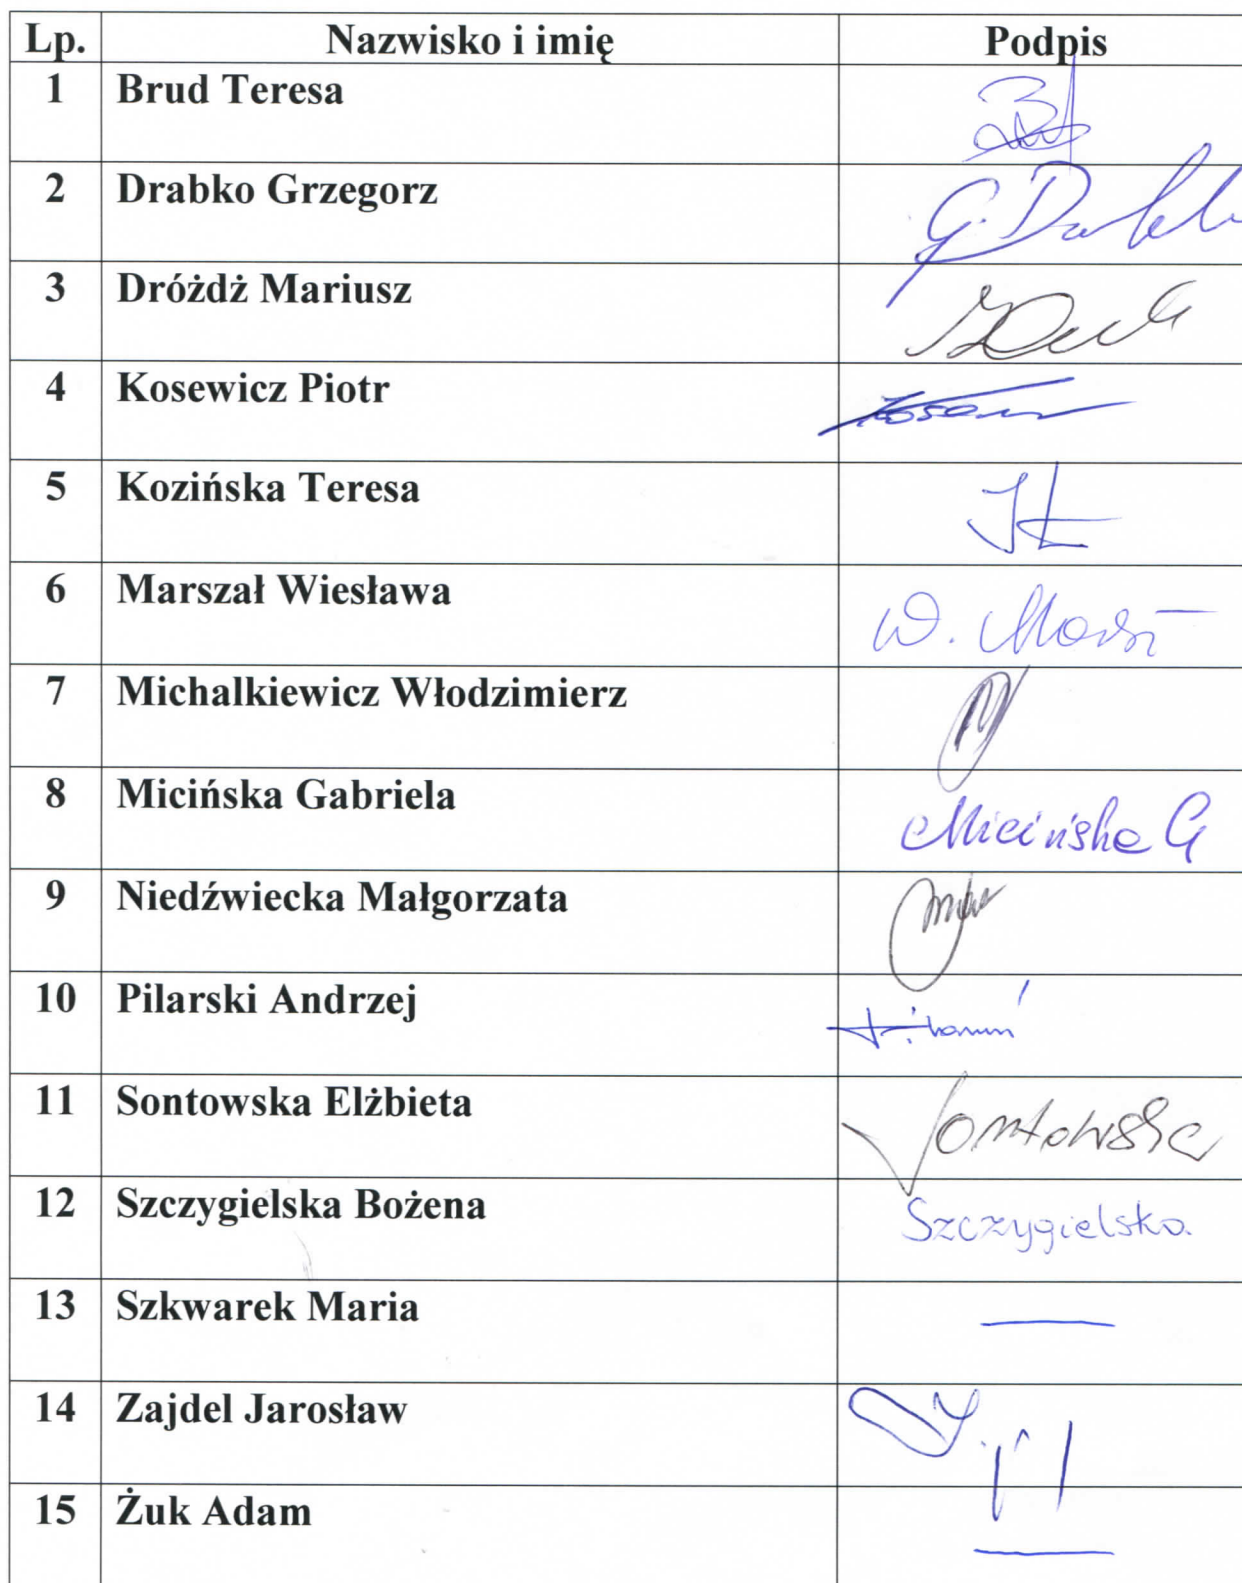 Lp. Nazwisko i imię Podpis
1 Brud Teresa
2 Drabko Grzegorz
3 Dróżdż Mariusz
4 Kosewicz Piotr
5 Kozińska Teresa
6 Marszał Wiesława
7 Michalkiewicz Włodzimierz
8 Micińska Gabriela Micińska G
9 Niedźwiecka Małgorzata
10 Pilarski Andrzej
11 Sontowska Elżbieta Sontowska
12 Szczygielska Bożena Szczygielska
13 Szkwarek Maria —
14 Zajdel Jarosław
15 Żuk Adam —